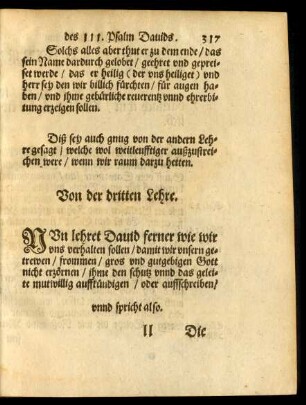 des III. Psalm Dauids. 317
Solchs alles aber thut er zu dem ende / das
sein Name dardurch gelobet / geehret vnd geprei-
set werde / das er heilig (der vns heiliget) vnd
herr sey den wir billich fürchten / für augen ha-
ben / vnd jhme gebürliche reuerentz vnnd ehrerbi-
tung erzeigen sollen.
Diß sey auch gnug von der andern Leh-
re gesagt / welche wol weitleufftiger außzustrei-
chen were / wenn wir raum darzu hetten.
Von der dritten Lehre.
NVn lehret Dauid ferner wie wir
vns verhalten sollen / damit wir vnsern ge-
trewen / frommen / gros vnd gutgebigen Gott
nicht erzörnen / jhme den schutz vnnd das gelei-
te mutwillig auffkündigen / oder auffschreiben /
vnnd spricht also.
II Die